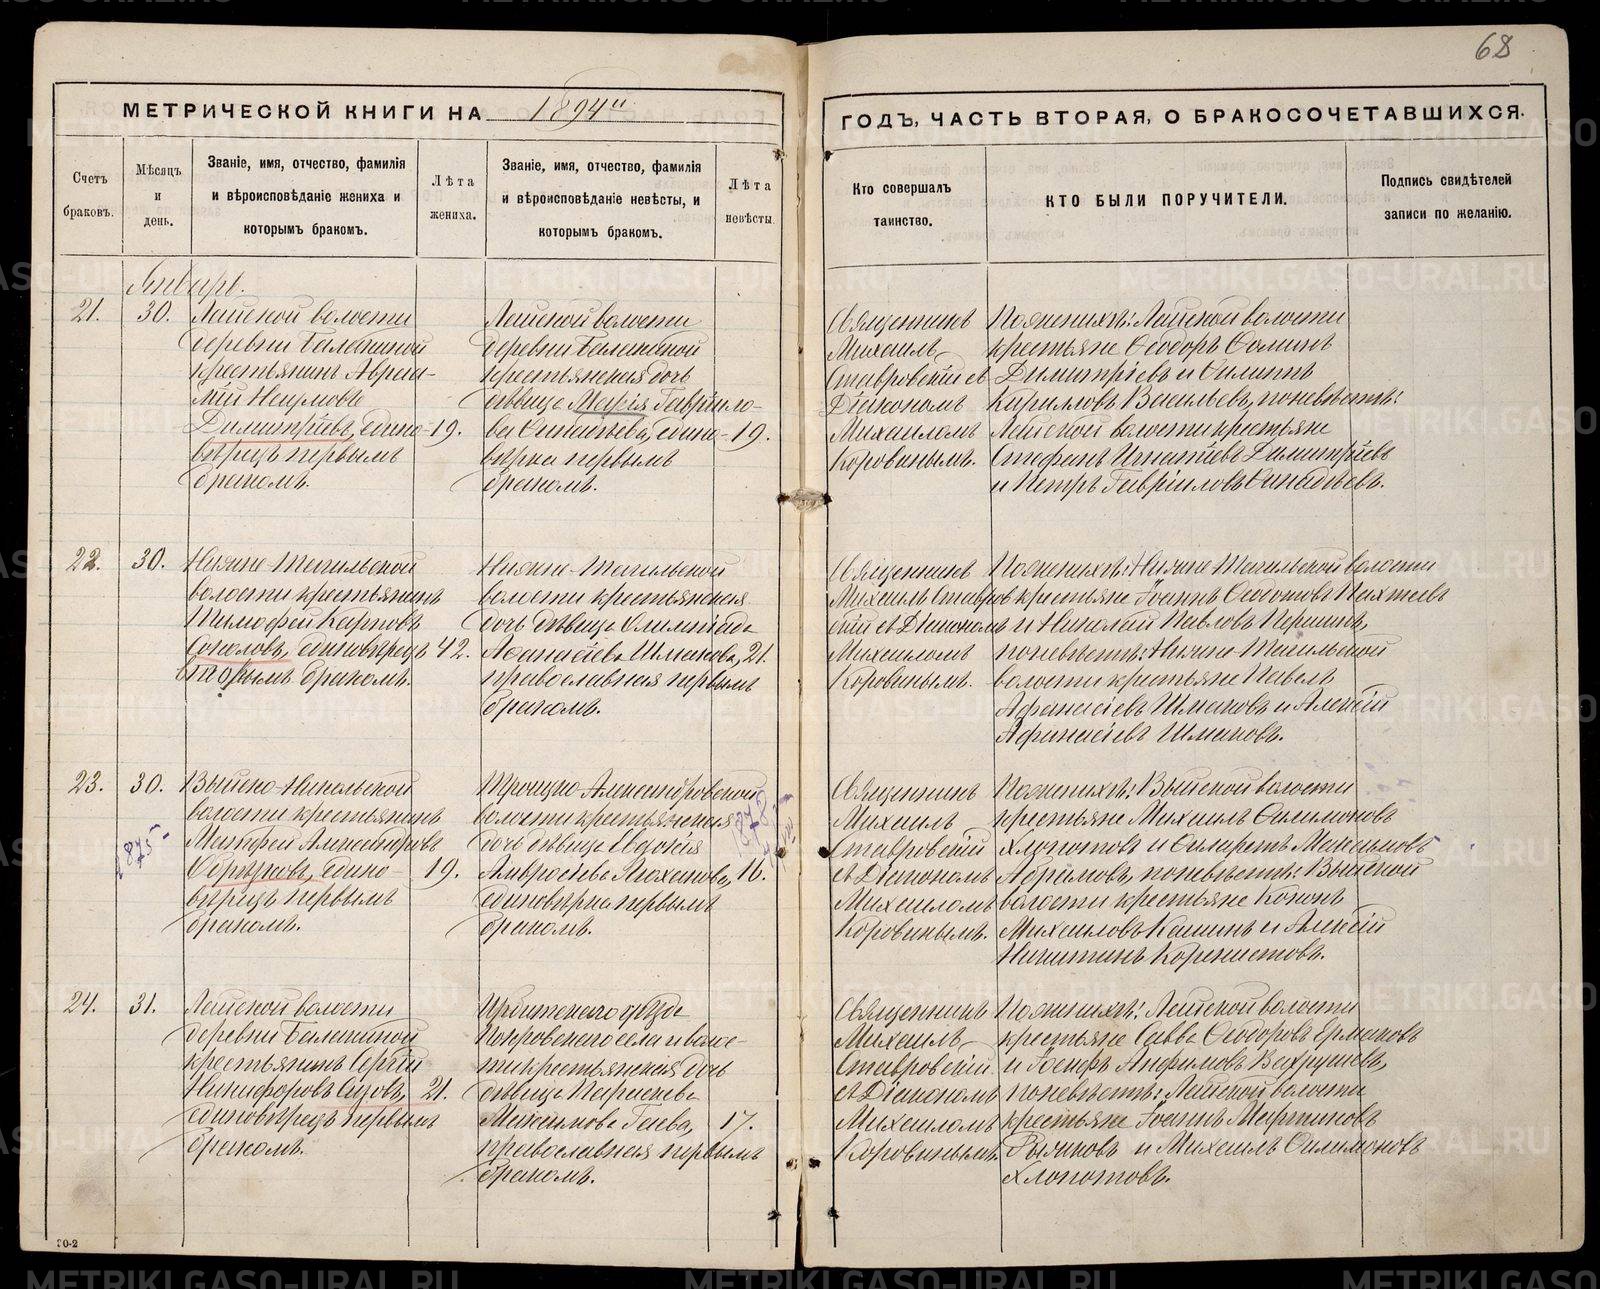 68
МЕТРИЧЕСКОЙ КНИГИ НА 1894й
ГОДЪ, ЧАСТЬ ВТОРАЯ, О БРАКОСОЧЕТАВШИХСЯ.
Счетъ
браковъ.
Мѣсяцъ
и
день.
Званіе, имя, отчество, фамилія
и вѣроисповѣданіе жениха и
которымъ бракомъ.
Лѣта
жениха.
Званіе, имя, отчество, фамилія
и вѣроисповѣданіе невѣсты, и
которымъ бракомъ.
Лѣта
невѣсты.
Кто совершалъ
таинство.
КТО БЫЛИ ПОРУЧИТЕЛИ.
Подпись свидѣтелей
записи по желанію.
Январь.
21.
30.
Лайской волости
деревни Балакиной
крестьянинъ Авраа-
мій Наумовъ
Димитріевъ, едино-
вѣрецъ первымъ
бракомъ.
19.
Лайской волости
деревни Балакиной
крестьянская дочь
дѣвица Марія Гаврило-
ва Синадѣева, едино-
вѣрка первымъ
бракомъ.
19.
Священникъ
Михаилъ
Ставровскій съ
Діакономъ
Михаиломъ
Коровинымъ.
По женихѣ: Лайской волости
крестьяне Ѳеодоръ Ѳоминъ
Димитріевъ и Филиппъ
Кирилловъ Васильевъ, по невѣстѣ:
Лайской волости крестьяне
Стефанъ Игнатіевъ Димитріевъ
и Петръ Гавріиловъ Синадѣевъ.
22.
30.
Нижне-Тагильской
волости крестьянинъ
Тимофей Карповъ
Соколовъ, единовѣрецъ
вторымъ бракомъ.
42.
Нижне-Тагильской
волости крестьянская
дочь дѣвица Олимпіада
Аѳанасіева Шмакова,
православная первымъ
бракомъ.
21.
Священникъ
Михаилъ Ставров
скій съ Діакономъ
Михаиломъ
Коровинымъ.
По женихѣ: Нижне Тагильской волости
крестьяне Іоаннъ Ѳедотовъ Пихтеевъ
и Николай Павловъ Першинъ,
по невѣстѣ: Нижне Тагильской
волости крестьяне Павелъ
Афанасіевъ Шмаковъ и Алексій
Афанасіевъ Шмаковъ.
23.
30.
1875
Выйско-Никольской
волости крестьянинъ
Матфей Александровъ
Обрѣзковъ, едино-
вѣрецъ первымъ
бракомъ.
19.
Троицко-Александровской
волости крестьянская
дочь дѣвица Евдокія
Амвросіева Плоханова,
единовѣрка первымъ
бракомъ.
16.
1878
Священникъ
Михаилъ
Ставровскій
съ Діакономъ
Михаиломъ
Коровинымъ.
По женихѣ: Выйской волости
крестьяне Михаилъ Филимоновъ
Хлопотовъ и Филаретъ Михаиловъ
Абрамовъ, по невѣстѣ: Выйской
волости крестьяне Кононъ
Михаиловъ Кашинъ и Алексій
Никитинъ Корнистовъ.
24.
31.
Лайской волости
деревни Балакиной
крестьянинъ Сергій
Никифоровъ Сизовъ,
единовѣрецъ первымъ
бракомъ.
21.
Ирбитскаго уѣзда
Покровскаго села и волос-
ти крестьянская дочь
дѣвица Параскева
Максимова Гаева,
православная первымъ
бракомъ.
17.
Священникъ
Михаилъ
Ставровскій
съ Діакономъ
Михаиломъ
Коровинымъ.
По женихѣ: Лайской волости
крестьяне Савва Ѳеодоровъ Ермаковъ
и Іосифъ Анфимовъ Вахрушевъ,
по невѣстѣ: Лайской волости
крестьяне Іоаннъ Мартиновъ
Рычковъ и Михаилъ Филимоновъ
Хлопотовъ.
METRIKI.GASO-URAL.RU